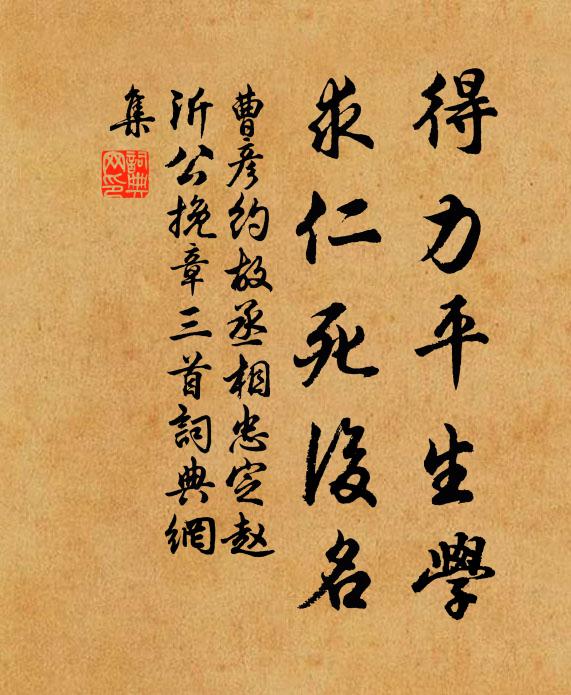 得力平生學
求仁死後名
曹彥約故丞相忠定趙
沂公挽章三首詞典網
集
詞典網印